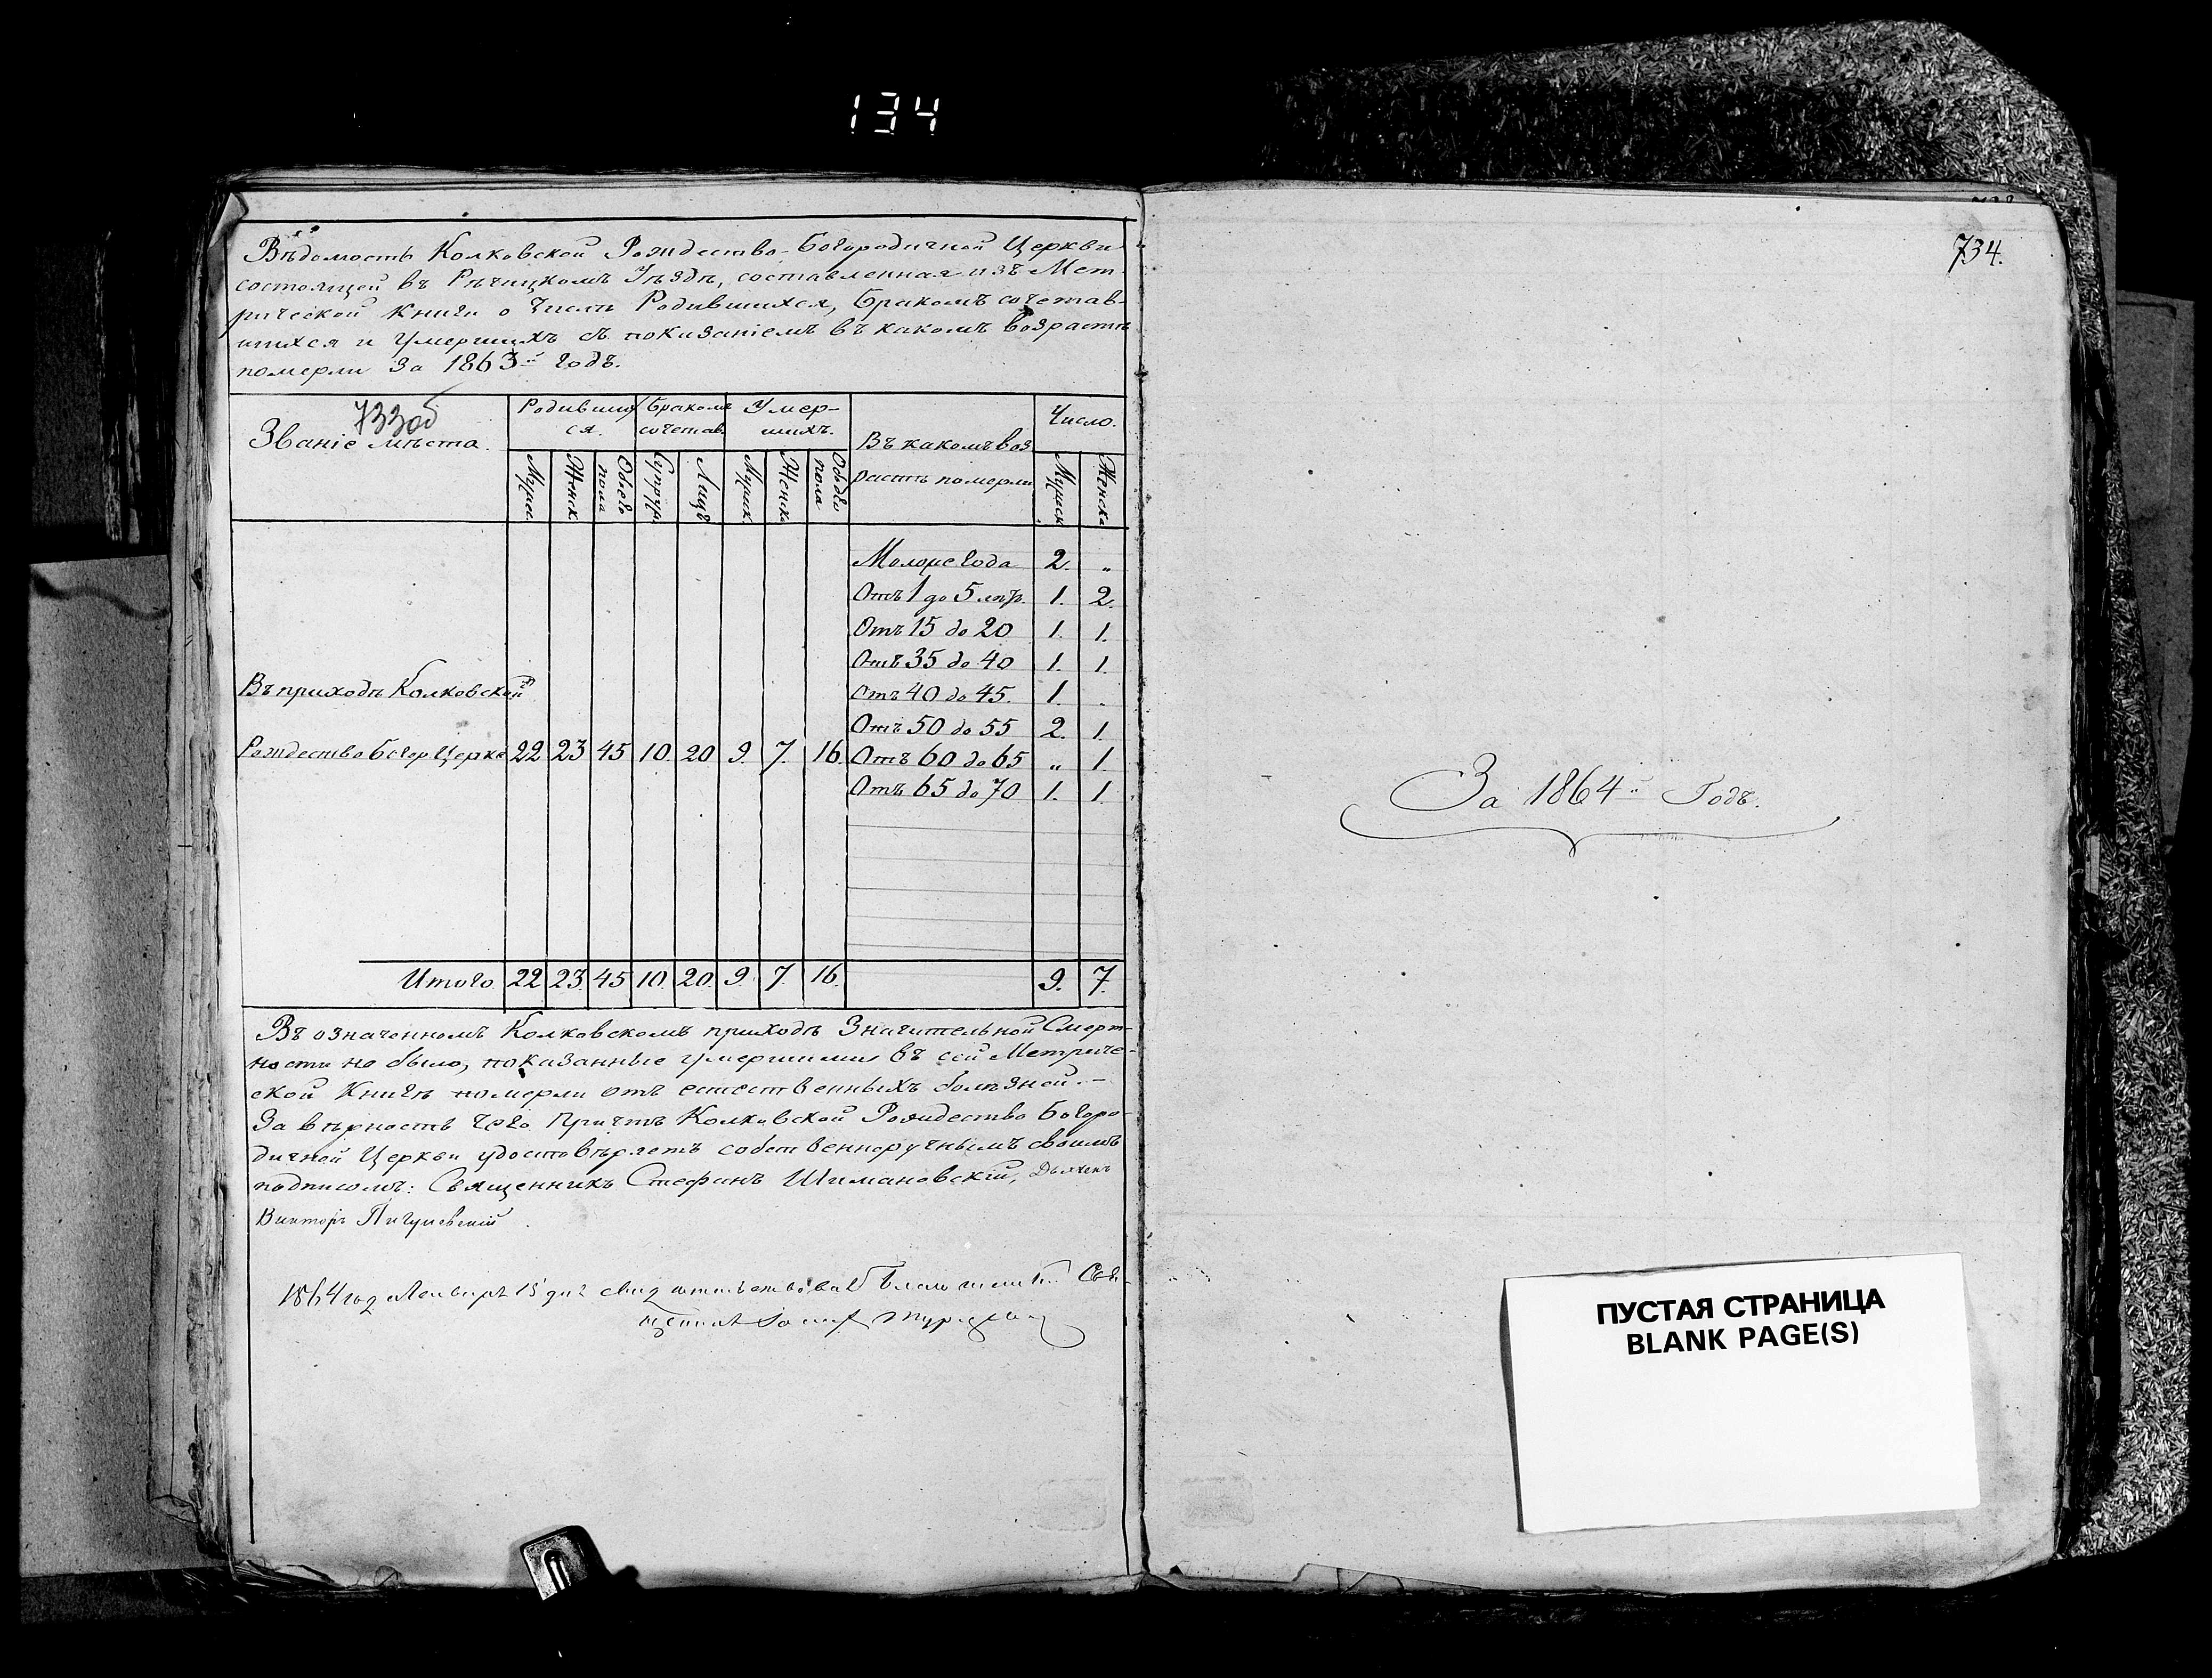 134
Вѣдомость Колковской Рождество-Богородичной Церкви
состоящей въ Рѣчицкомъ Уѣздѣ, составленная изъ Мет-
рической Книги о Числѣ Родившихся, Бракомъ сочетав-
шихся и Умершихъ съ показаніемъ въ какомъ возрастѣ
померли За 1863й годъ.
733об
Званіе мѣста. Родивших ся. Бракомъ сочетав. Умер- шихъ. Въ какомъ воз растѣ померли Число.
Мужес. Женск. Обоего пола Супруг. Лицъ Мужск. Женск. Обоего пола Мужск Женска
Моложе года 2. „
Отъ 1 до 5 лѣтъ. 1. 2.
Отъ 15 до 20 1. 1.
Отъ 35 до 40 1. 1
Въ приходѣ Колковской Отъ 40 до 45. 1. „
Отъ 50 до 55 2. 1.
Рождество Богор Церкв 22 23 45 10. 20 9. 7. 16. Отъ 60 до 65 „ 1.
Отъ 65 до 70 1. 1.
Итого. 22 23. 45 10. 20. 9. 7. 16. 9. 7.
Въ означенномъ Колковскомъ приходѣ Значительной Смерт-
ности не было, показанные умершими въ сей Метриче-
ской Книгѣ померли отъ естественныхъ болѣзней.-
За вѣрность чего Причтъ Колковской Рождество Богоро-
дичной Церкви удостовѣряетъ собственноручнымъ своимъ
подписомъ: Священникъ Стефанъ Шимановскій, Дьячекъ
Викторъ Пигулевскій
1864 год Января 15 дня Свя-
734.
За 1864й Годъ.
ПУСТАЯ СТРАНИЦА
BLANK PAGE(S)